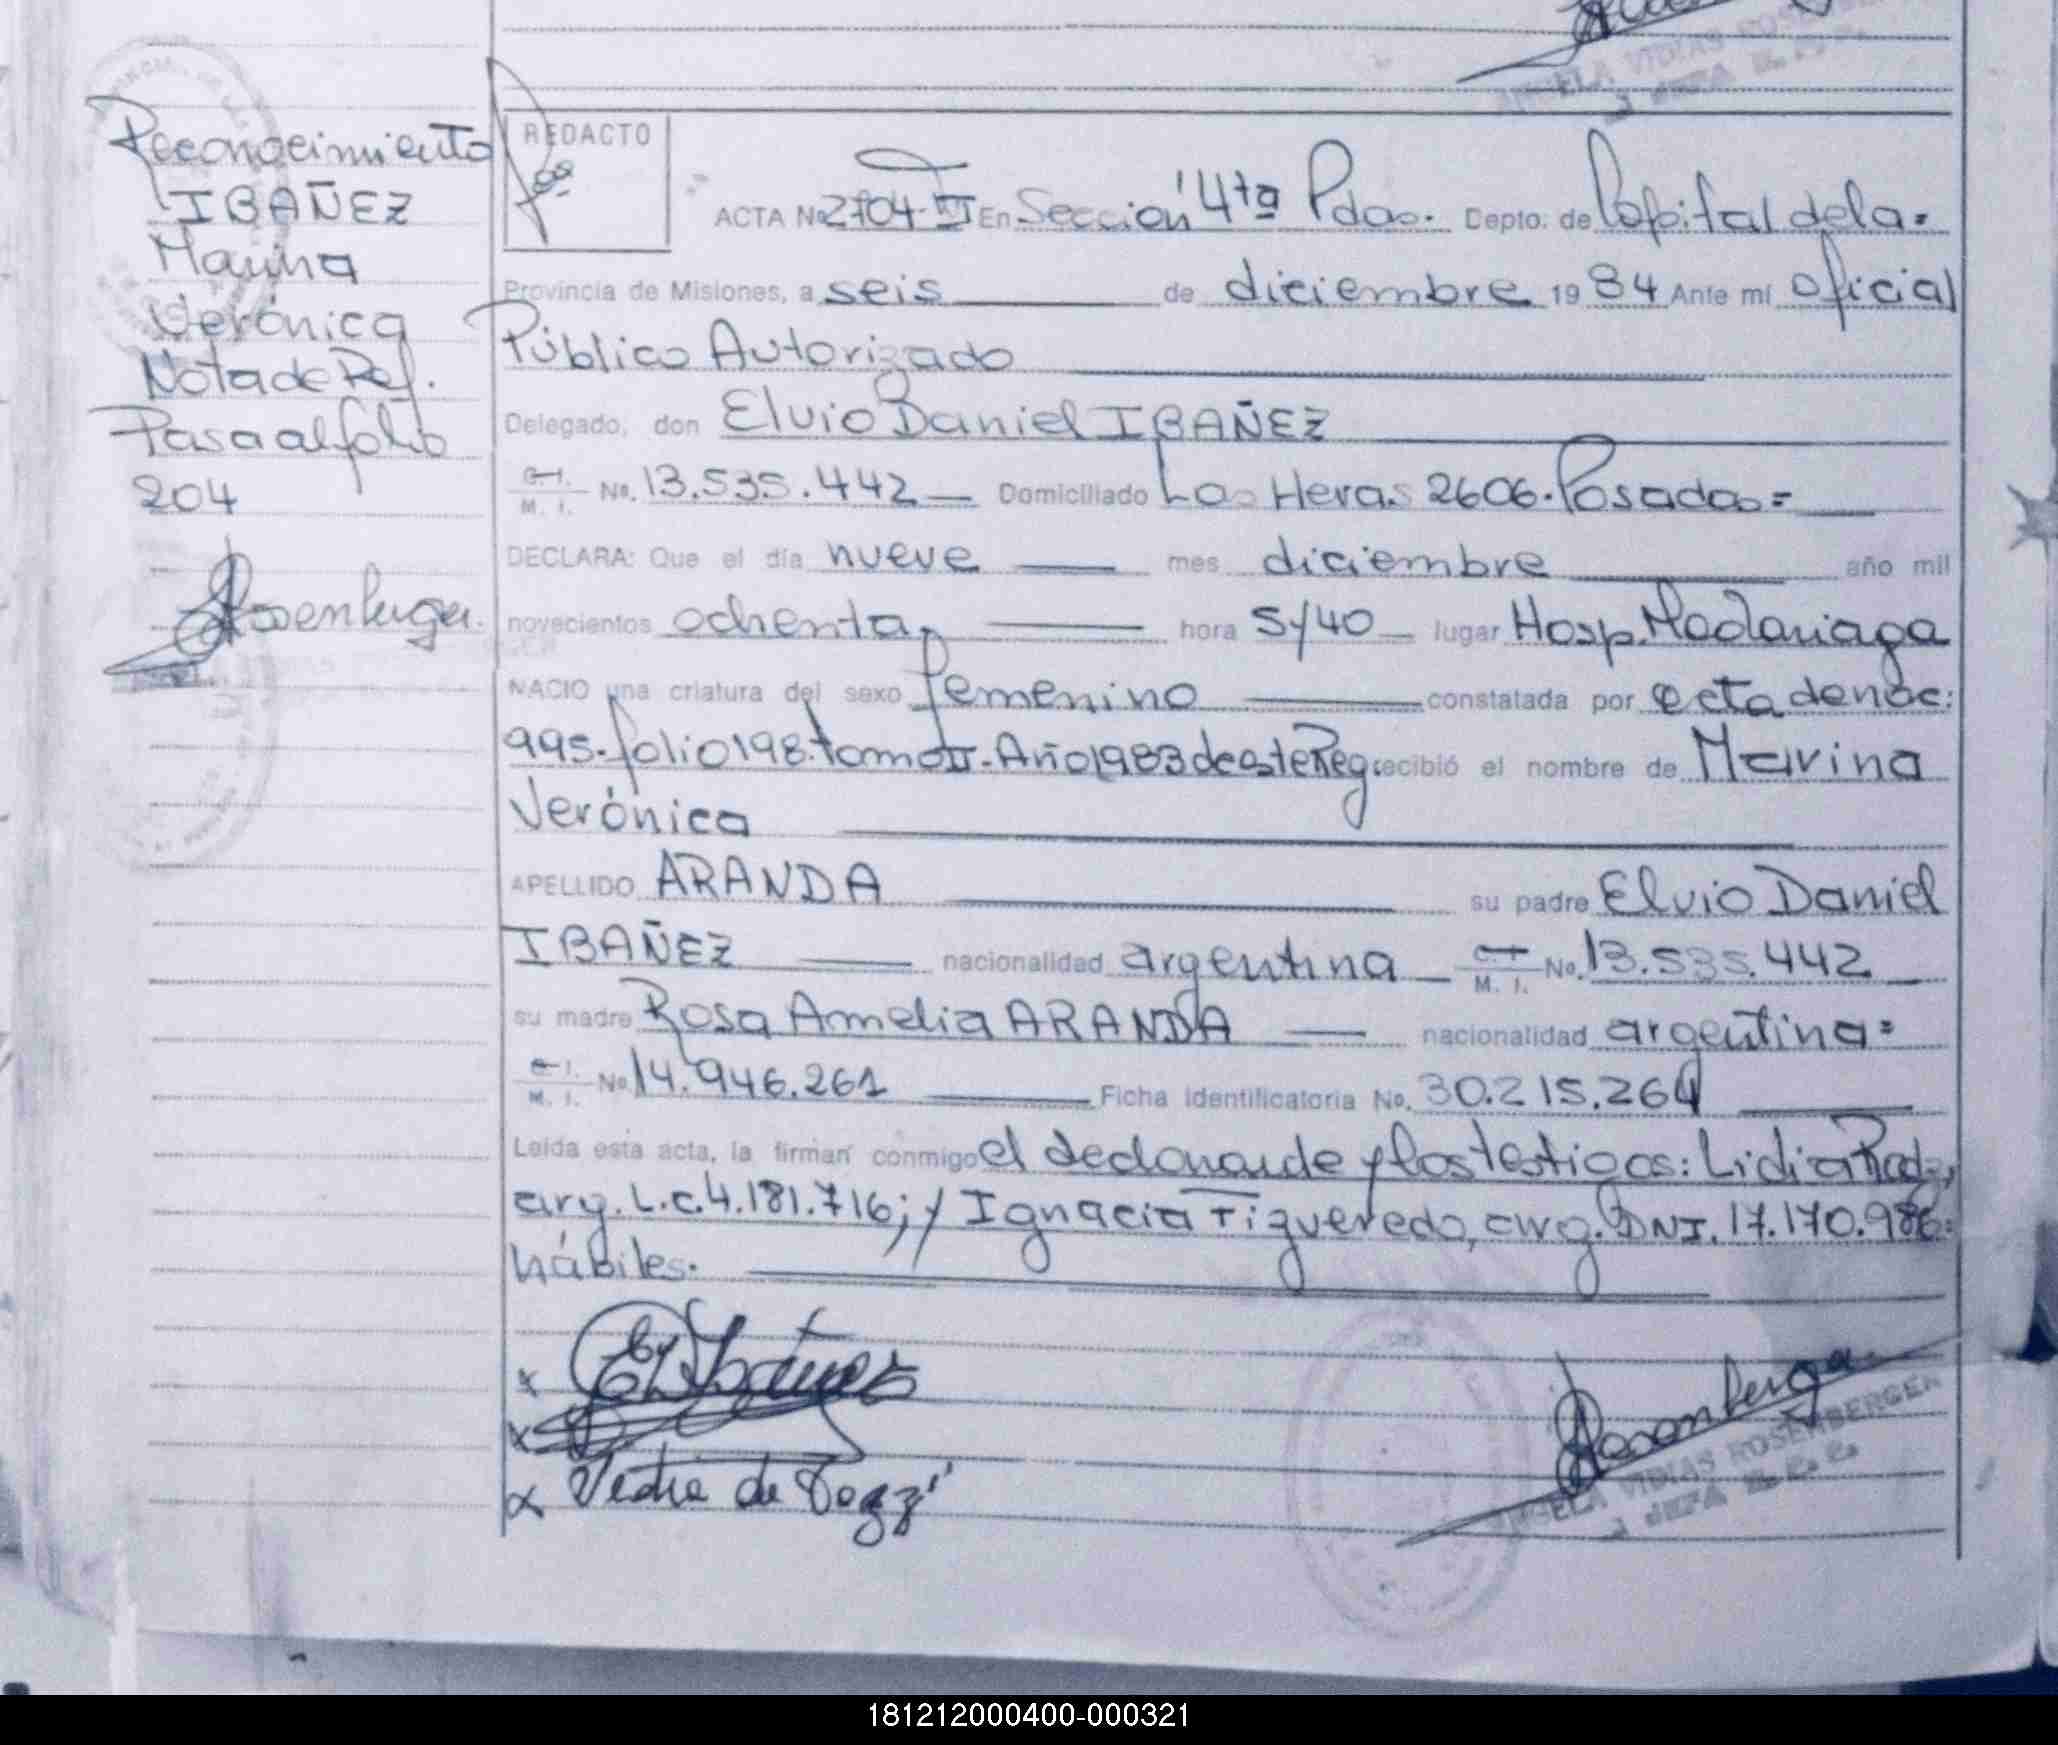 Reconocimiento
IBAÑEZ
Marina
Verónica
Nota de Ref.
Pasa al folio
204
Rosenberger.
ANGELA VIDIAS
REDACTO
ACTA No 2704-II En Sección 4ta Pdas. Depto. de Capital de la=
Provincia de Misiones, a seis de diciembre 19 84 Ante mi oficial
Público Autorizado
Delegado, don Elvio Daniel IBAÑEZ
C. I. M. I. No. 13.535.442 Domiciliado Las Heras 2606. Posadas=
DECLARA: Que el día nueve mes diciembre año mil
novecientos ochenta, hora 5/40 lugar Hosp. Madariaga
NACIO una criatura del sexo femenino constatada por acta de nac:
995-folio 198-tomo II-Año 1983 de este Reg. recibió el nombre de Marina
Verónica
APELLIDO ARANDA su padre Elvio Daniel
IBAÑEZ nacionalidad argentina M. I. No. 13.535.442
su madre Rosa Amelia ARANDA nacionalidad argentina=
C. I. M. I. No 14.946.261 Ficha identificatoria No. 30.215.264
Leida esta acta, la firman conmigo el declarante y los testigos: Lidia Rodz,
arg. L.C. 4.181.716; y Ignacia Figueredo, arg. DNI. 17.170.986=
hábiles.
x
x
x
Rosenberger
ANGELA VIDIAS ROSEMBERGER
JEFA
181212000400-000321